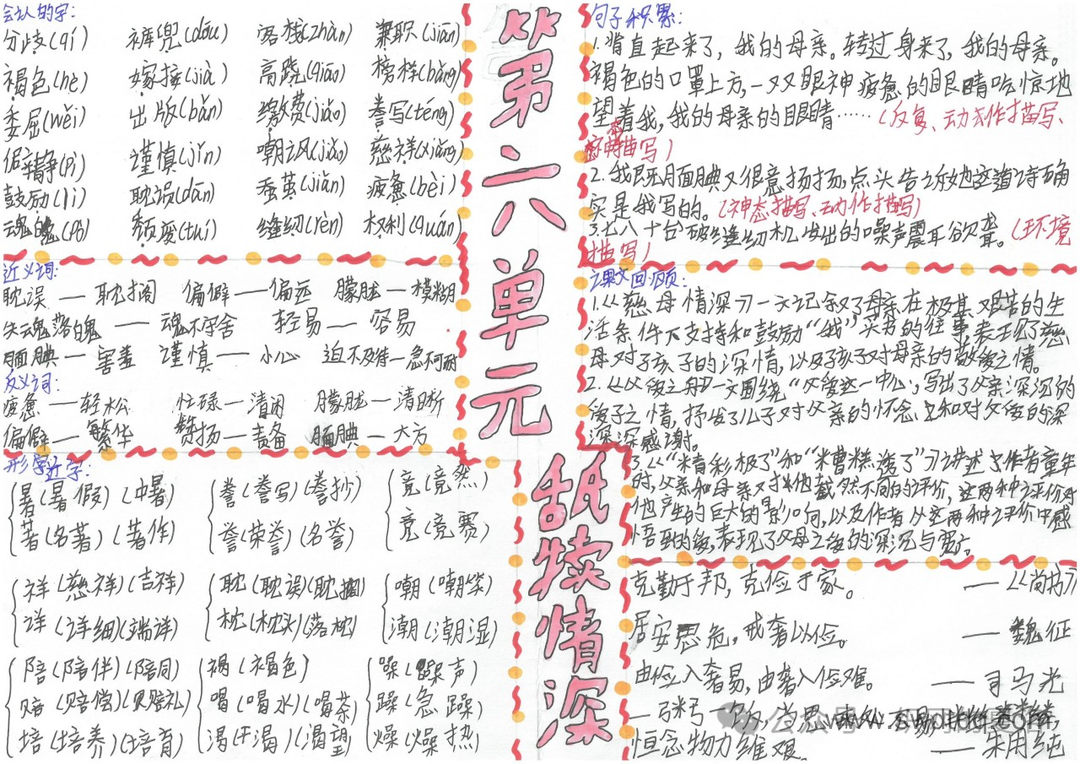 会认的字:
分歧(qí) 裤兜(dōu) 客栈(zhàn) 兼职(jiān)
褐色(hè) 嫁接(jià) 高跷(qiāo) 榜样(bǎng)
委屈(wěi) 出版(bǎn) 缴费(jiǎo) 誊写(téng)
偏僻(pì) 谨慎(jǐn) 嘲讽(cháo) 慈祥(xiáng)
鼓励(lì) 耽误(dān) 蚕茧(jiǎn) 疲惫(bèi)
魂魄(pò) 颓废(tuí) 缝纫(rèn) 权利(quán)
近义词:
耽误—耽搁 偏僻—偏远 朦胧—模糊
失魂落魄—魂不守舍 轻易—容易
腼腆—害羞 谨慎—小心 迫不及待—急不可耐
反义词:
疲惫—轻松 忙碌—清闲 朦胧—清晰
偏僻—繁华 赞扬—责备 腼腆—大方
形近字:
暑(暑假)(中暑) 誊(誊写)(誊抄) 竟(竟然)
著(名著)(著作) 誉(荣誉)(名誉) 竞(竞赛)
祥(慈祥)(吉祥) 耽(耽误)(耽搁) 嘲(嘲笑)
详(详细)(端详) 枕(枕头)(落枕) 潮(潮湿)
陪(陪伴)(陪同) 褐(褐色) 噪(噪声)
赔(赔偿)(赔礼) 喝(喝水)(喝茶) 躁(急躁)
培(培养)(培育) 渴(干渴)(渴望) 燥(燥热)
第六单元
舐犊情深
句子积累:
1.背直起来了,我的母亲。转过身来了,我的母亲。
褐色的口罩上方,一双眼神疲惫的眼睛吃惊地
望着我,我的母亲的眼睛……(反复、动作描写、
神态描写)
2.我既腼腆又很得意扬扬,点头告诉她这首诗确
实是我写的。(神态描写、动作描写)
3.七八十台破缝纫机发出的噪声震耳欲聋。(环境
描写)
课文回顾:
1.《慈母情深》一文记叙了母亲在极其艰苦的生
活条件下支持和鼓励“我”买书的往事,表现了慈
母对子孩子的深情,以及孩子对母亲的敬爱之情。
2.《父爱之舟》一文围绕“父爱”这一中心,写出了父亲深沉的
爱子之情,抒发了儿子对父亲的怀念之和对父爱的深
深感谢。
3.《“精彩极了”和“糟糕透了”》讲述了作者童年
时,父亲和母亲对他截然不同的评价,这两种评价对
他产生的巨大的影响,以及作者从这两种评价中感
悟到的爱,表现了父母之爱的深沉与宽广。
克勤于邦,克俭于家。 —《尚书》
居安思危,戒奢以俭。 —魏征
由俭入奢易,由奢入俭难。 —司马光
一粥一饭,当思来处不易;
恒念物力维艰。 —朱用纯
公众号